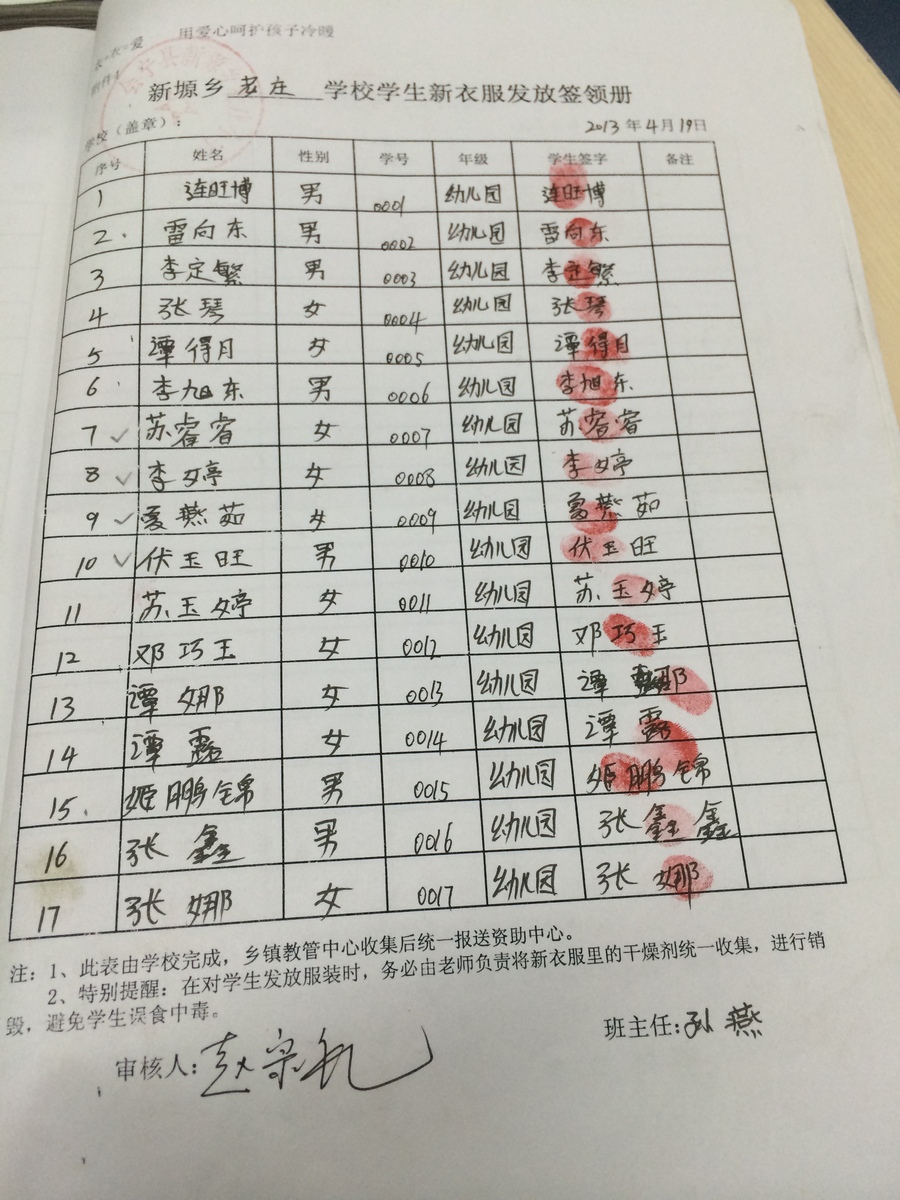 用爱心呵护孩子冷暖
衣+衣=爱
附件1
新塬乡 老庄 学校学生新衣服发放签领册
学校（盖章）：
2013 年 4 月 19 日
序号 姓名 性别 学号 年级 学生签字 备注
1 连旺博 男 0001 幼儿园 连旺博
2. 雷向东 男 0002 幼儿园 雷向东
3 李定繁 男 0003 幼儿园 李定繁
4 张琴 女 0004 幼儿园 张琴
5 谭得月 女 0005 幼儿园 谭得月
6 李旭东 男 0006 幼儿园 李旭东
7 苏睿睿 女 0007 幼儿园 苏睿睿
8 李婷 女 0008 幼儿园 李婷
9 燕茹 女 0009 幼儿园 燕茹
10 伏玉旺 男 0010 幼儿园 伏玉旺
11 苏玉婷 女 0011 幼儿园 苏玉婷
12 邓巧玉 女 0012 幼儿园 邓巧玉
13 谭娜 女 0013 幼儿园 谭娜
14 谭露 女 0014 幼儿园 谭露
15. 姬鹏锦 男 0015 幼儿园 姬鹏锦
16 张鑫 男 0016 幼儿园 张鑫鑫
17 张娜 女 0017 幼儿园 张娜
注：1、此表由学校完成，乡镇教管中心收集后统一报送资助中心。
2、特别提醒：在对学生发放服装时，务必由老师负责将新衣服里的干燥剂统一收集，进行销
毁，避免学生误食中毒。
班主任：孙燕
审核人：赵宗礼